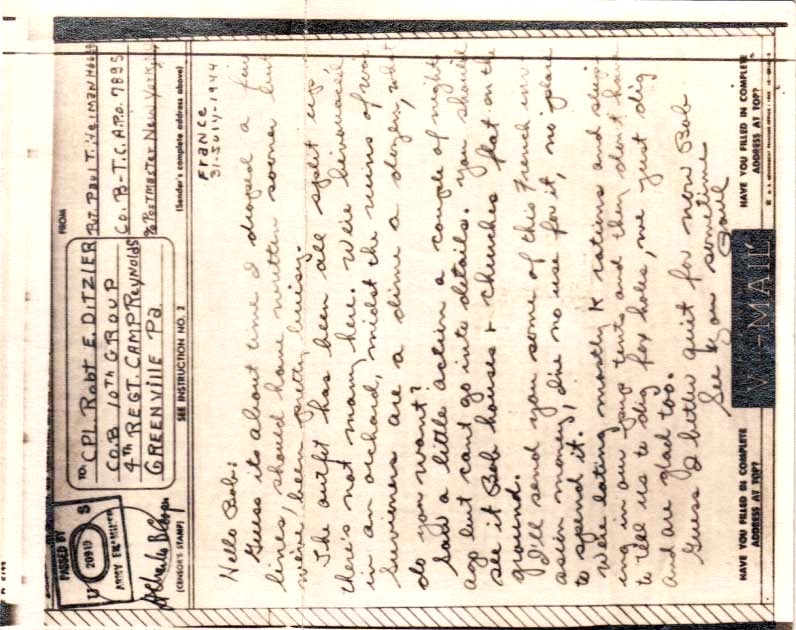 PASSED BY
U 20910 S
ARMY EXAMINER
(CENSOR'S STAMP)
TO. CPL RobT E. DITZLER
CO. B 10TH GROUP
4TH REGT. CAMP Reynolds
GREENVILLE Pa.
SEE INSTRUCTION NO. 2
FROM
PVT. PAUL T.
CO. B-T.C. A.P.O. 7895
% POSTMASTER New York
(Sender's complete address above)
FraNce
31-July-1944
Hello Bob:
Guess its about time I droped a few
lines, should have written sooner but
we've been pretty buisy.
The outfit has been all split up
there's not many here. We're bivouaced
in an orchard, midst the ruins of war.
Suvieners are a dime a dozen, what
do you want?
Saw a little action a couple of nights
ago but cant go into details. You should
see it Bob houses & churches flat on the
ground.
I'll send you some of this French inv-
asion money, I've no use for it, no place
to spend it.
We're eating mostly K rations and sleep-
ing in our pup tents and they don't have
to tell us to dig fox holes, we just dig
and are glad too.
Guess I better quiet for now Bob
See you sometime
Paul
HAVE YOU FILLED IN COMPLETE
ADDRESS AT TOP?
V-MAIL
HAVE YOU FILLED IN COMPLETE
ADDRESS AT TOP?